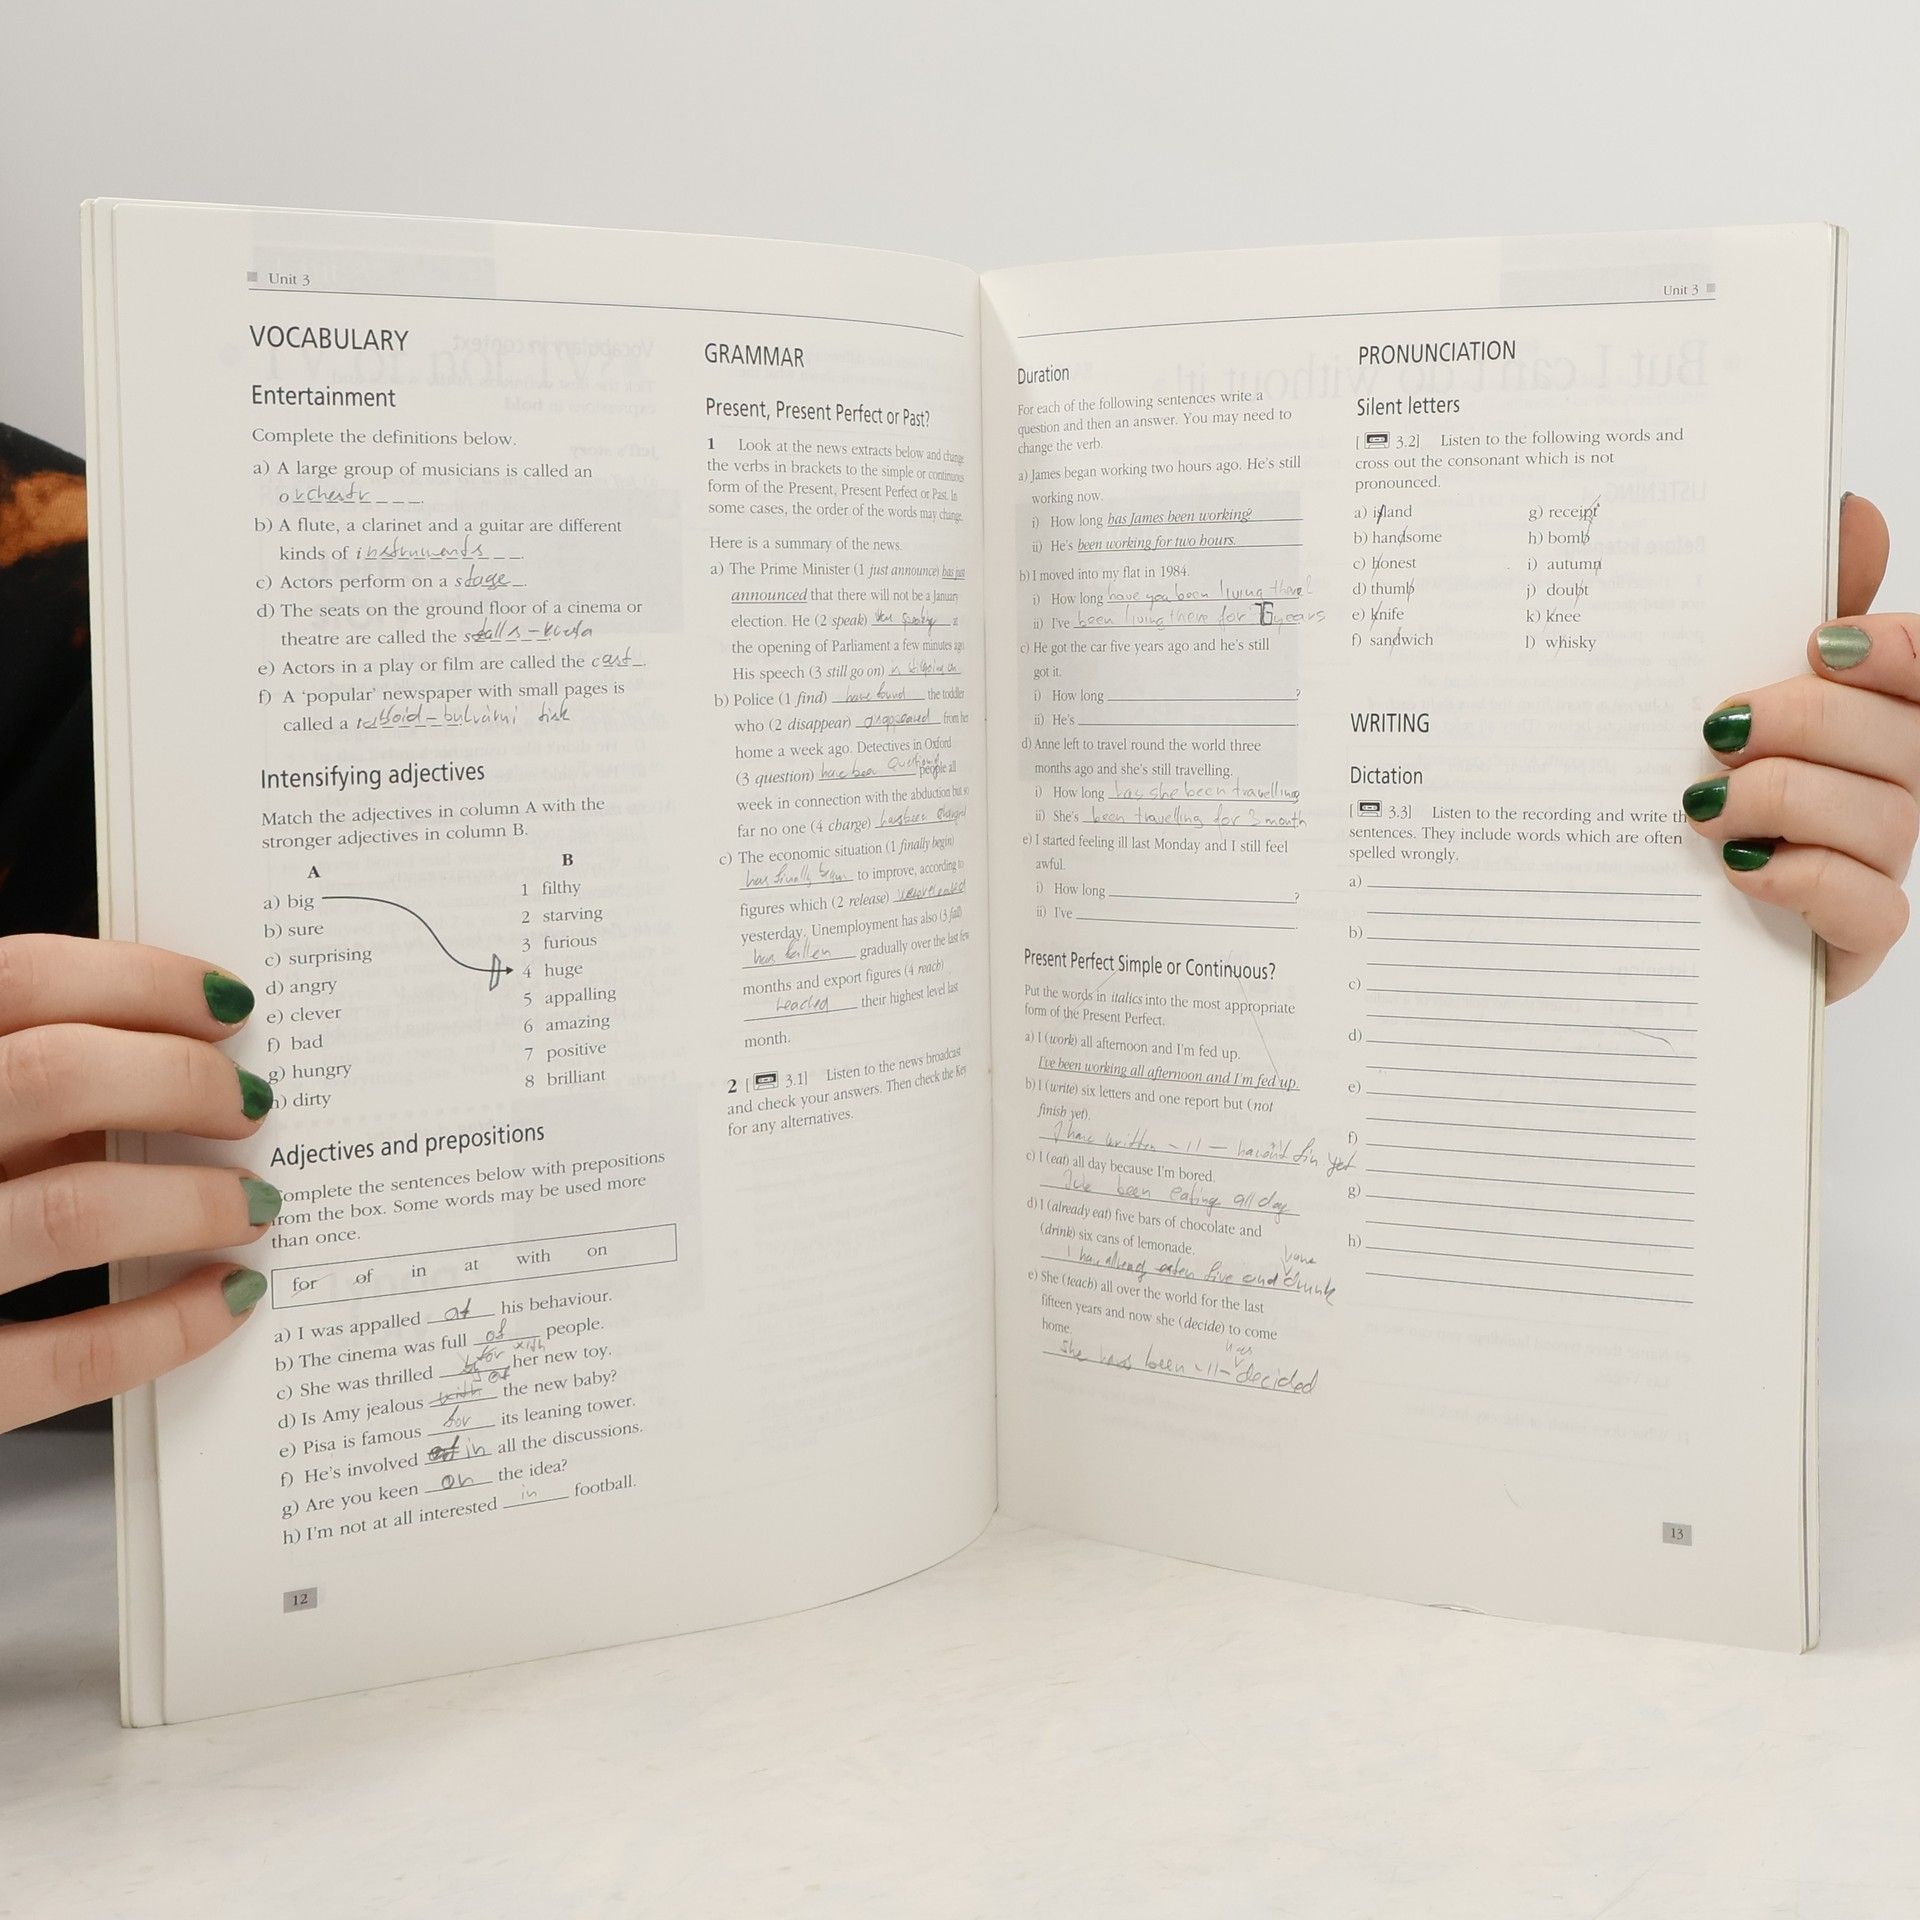 Unit 3
VOCABULARY
Entertainment
Complete the definitions below.
a) A large group of musicians is called an
orchestr _ _ _.
b) A flute, a clarinet and a guitar are different
kinds of instruments _ _.
c) Actors perform on a stage_.
d) The seats on the ground floor of a cinema or
theatre are called the stalls –
e) Actors in a play or film are called the cast_.
f) A 'popular' newspaper with small pages is
called a tabloid –
Intensifying adjectives
Match the adjectives in column A with the
stronger adjectives in column B.
A
B
a) big
b) sure
c) surprising
d) angry
e) clever
f) bad
g) hungry
h) dirty
1 filthy
2 starving
3 furious
4 huge
5 appalling
6 amazing
7 positive
8 brilliant
Adjectives and prepositions
Complete the sentences below with prepositions
from the box. Some words may be used more
than once.
for of in at with on
a) I was appalled at his behaviour.
b) The cinema was full of people.
c) She was thrilled for with her new toy.
d) Is Amy jealous with of the new baby?
e) Pisa is famous for its leaning tower.
f) He's involved in all the discussions.
g) Are you keen on the idea?
h) I'm not at all interested in football.
12
GRAMMAR
Present, Present Perfect or Past?
1 Look at the news extracts below and change
the verbs in brackets to the simple or continuous
form of the Present, Present Perfect or Past. In
some cases, the order of the words may change.
Here is a summary of the news.
a) The Prime Minister (1 just announce) has just
announced that there will not be a January
election. He (2 speak) at
the opening of Parliament a few minutes ago.
His speech (3 still go on)
b) Police (1 find) have found the toddler
who (2 disappear) disappeared from her
home a week ago. Detectives in Oxford
(3 question) have been questioning people all
week in connection with the abduction but so
far no one (4 charge) has been charged
c) The economic situation (1 finally begin)
has finally begun to improve, according to
figures which (2 release)
yesterday. Unemployment has also (3 fall)
has fallen gradually over the last few
months and export figures (4 reach)
reached their highest level last
month.
2 [ 3.1] Listen to the news broadcast
and check your answers. Then check the Key
for any alternatives.
Unit 3
Duration
For each of the following sentences write a
question and then an answer. You may need to
change the verb.
a) James began working two hours ago. He's still
working now.
i) How long has James been working?
ii) He's been working for two hours.
b) I moved into my flat in 1984.
i) How long have you been living there?
ii) I've been living there for years
c) He got the car five years ago and he's still
got it.
i) How long ?
ii) He's .
d) Anne left to travel round the world three
months ago and she's still travelling.
i) How long has she been travelling
ii) She's been travelling for 3 month
e) I started feeling ill last Monday and I still feel
awful.
i) How long ?
ii) I've .
Present Perfect Simple or Continuous?
Put the words in italics into the most appropriate
form of the Present Perfect.
a) I (work) all afternoon and I'm fed up.
I've been working all afternoon and I'm fed up.
b) I (write) six letters and one report but (not
finish yet).
I have written – 11 – haven't fin yet
c) I (eat) all day because I'm bored.
I've been eating all day
d) I (already eat) five bars of chocolate and
(drink) six cans of lemonade.
have
I have already eaten five and drunk
e) She (teach) all over the world for the last
fifteen years and now she (decide) to come
home.
has
she has been – 11 – decided
PRONUNCIATION
Silent letters
[ 3.2] Listen to the following words and
cross out the consonant which is not
pronounced.
a) island
b) handsome
c) honest
d) thumb
e) knife
f) sandwich
g) receipt
h) bomb
i) autumn
j) doubt
k) knee
l) whisky
WRITING
Dictation
[ 3.3] Listen to the recording and write th
sentences. They include words which are often
spelled wrongly.
a)
b)
c)
d)
e)
f)
g)
h)
13